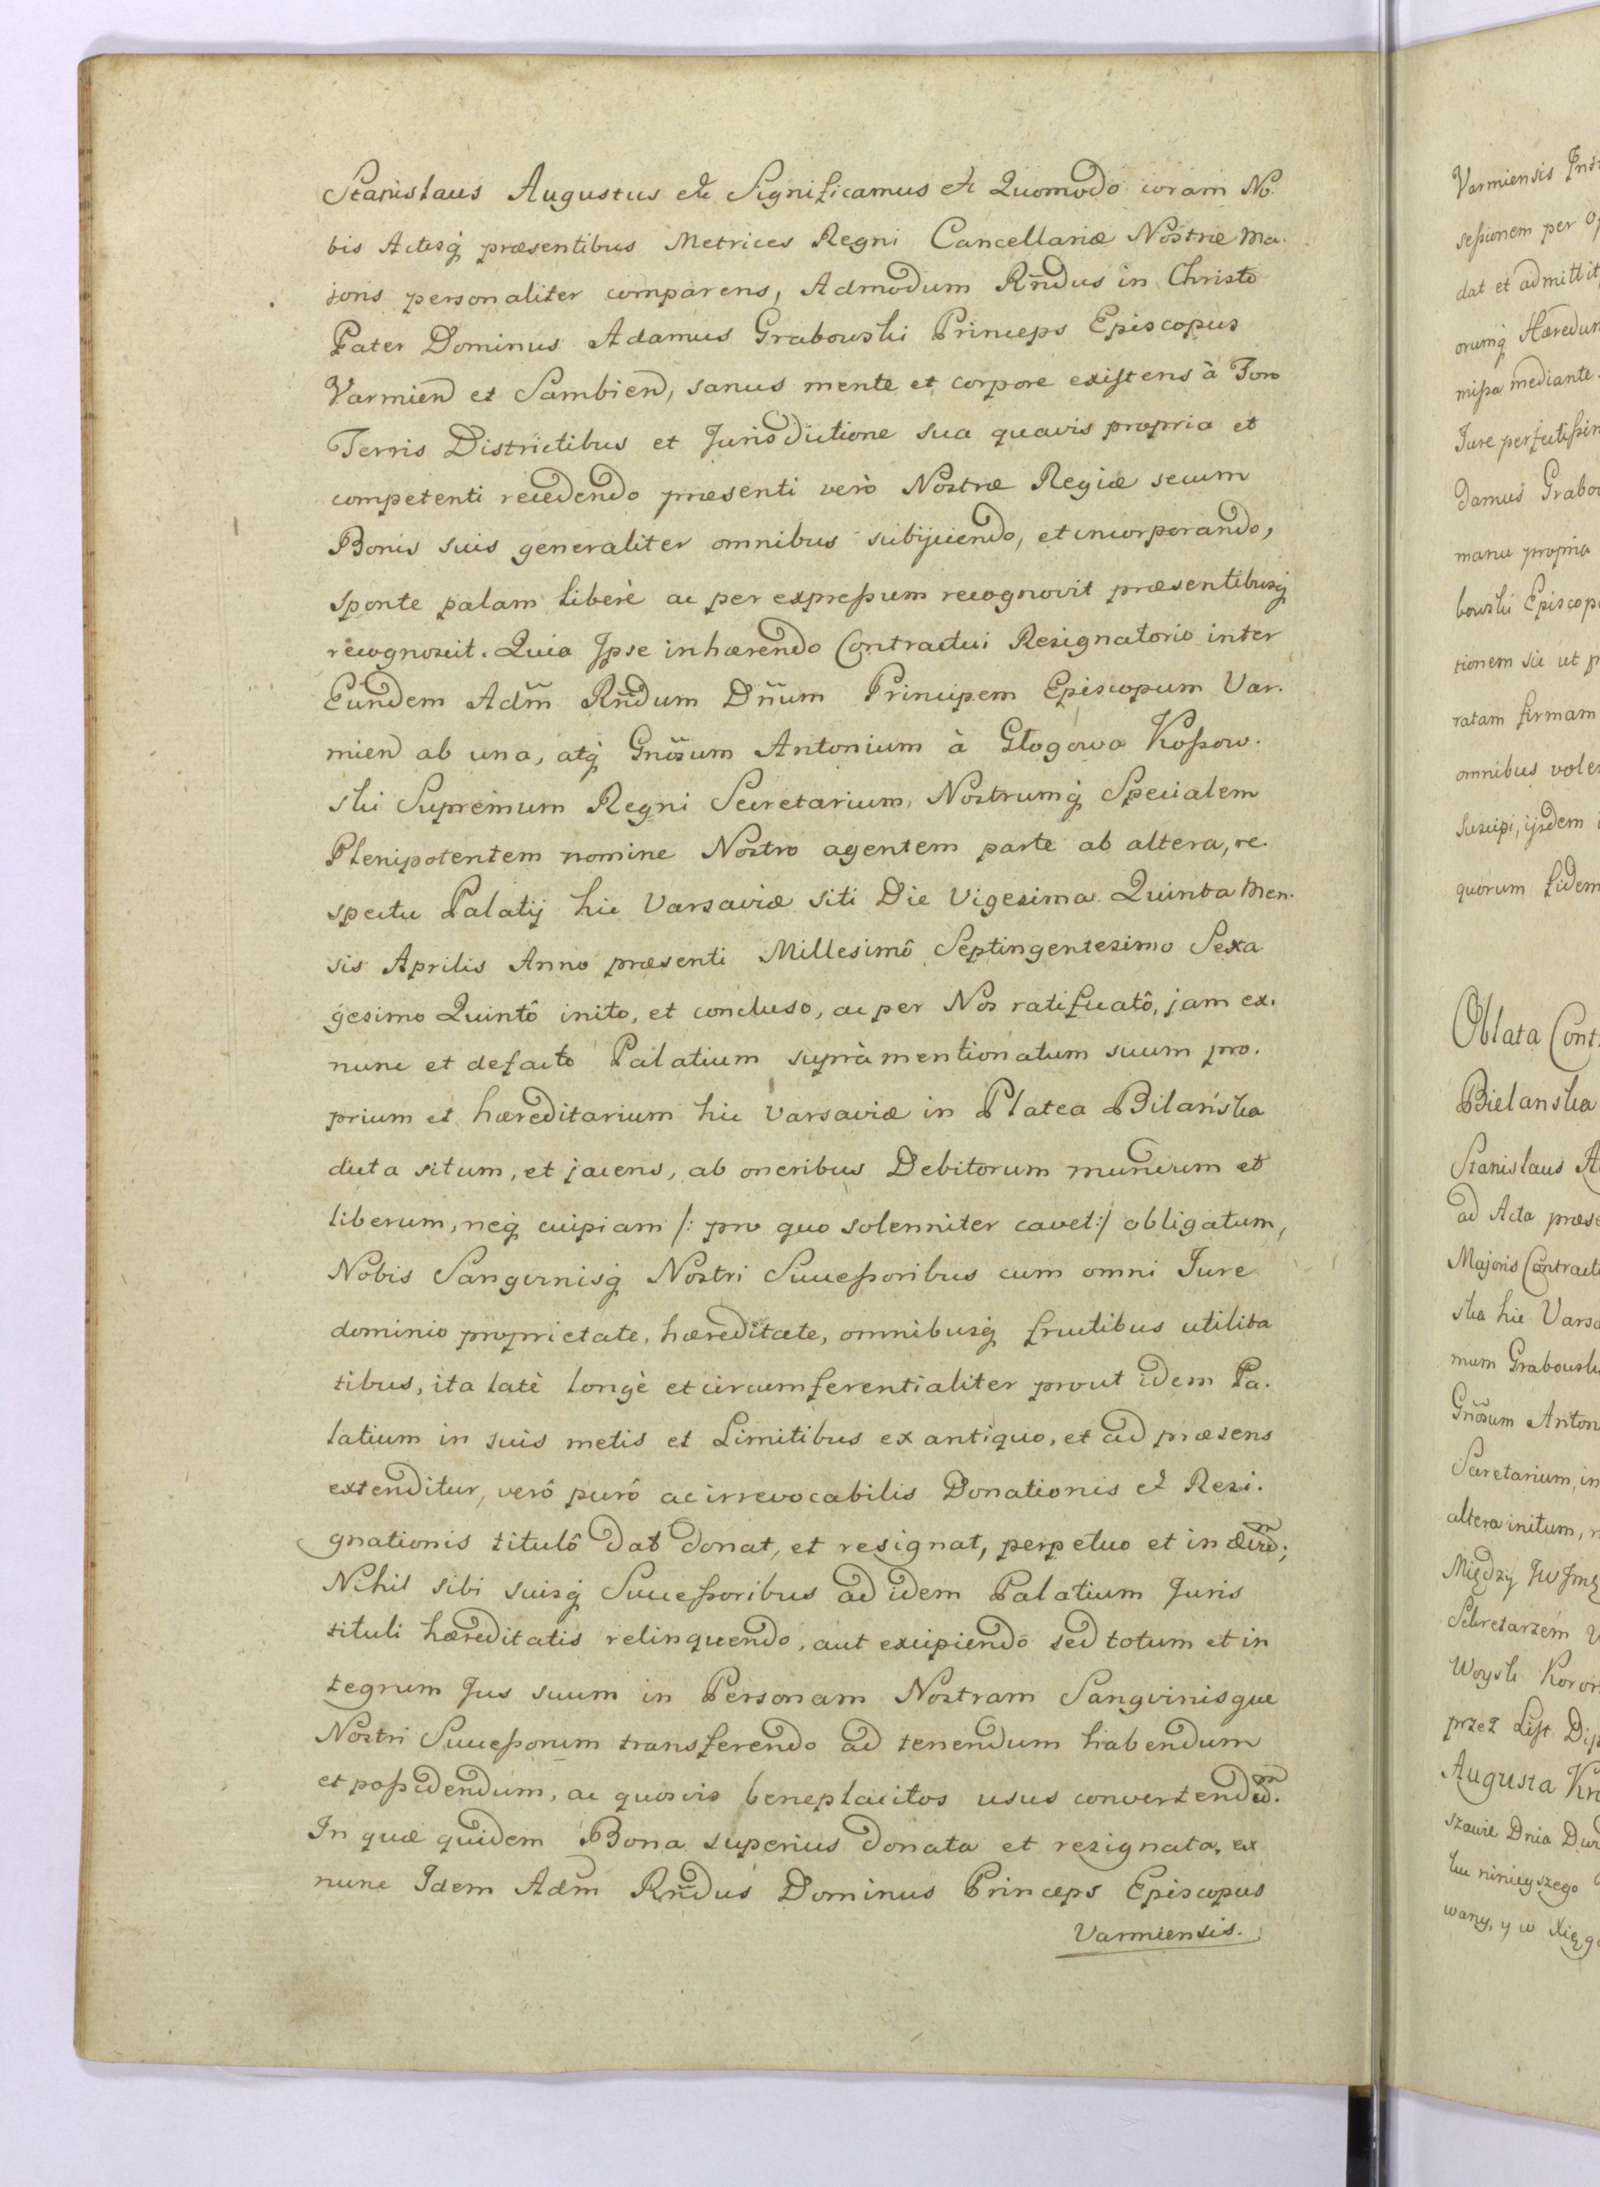 Stanislaus Augustus etc Significamus etc Quomodo coram No.
bis Actisq́ præsentibus Metrices Regni Cancellariæ Nostræ Ma.
joris personaliter comparens, Admodum Rñdus in Christo
Pater Dominus Adamus Grabowski Princeps Episcopus
Varmien et Sambien, sanus mente et corpore existens à Foro
Terris Districtibus et Jurisdictione sua quavis propria et
competenti recedendo præsenti verò Nostræ Regiæ secum
Bonis suis generaliter omnibus subijciendo, et incorporando,
sponte palam liberè ac per expreßum recognovit præsentibusq́
recognoscit. Quia Ipse inhærendo Contractui Resignatorio inter
Eundem Adm̃ Rñdum Dñum Principem Episcopum Var.
mien ab una, atq́ Gnõsum Antonium à Głogowa Koßow.
ski Supremum Regni Secretarium, Nostrumq́ Specialem
Plenipotentem nomine Nostro agentem parte ab altera, re.
spectu Palatij hic Varsaviæ siti Die Vigesima Quinta Men.
sis Aprilis Anno præsenti Millesimô Septingentesimo Sexa
gesimo Quintô inito, et concluso, ac per Nos ratificatô, jam ex.
nunc et defacto Palatium suprà mentionatum suum pro.
prium et hæreditarium hic Varsaviæ in Platea Bilańska
dicta situm, et jacens, ab oneribus Debitorum munium et
liberum, neq́ cuipiam /: pro quo solenniter cavet:/ obligatum,
Nobis Sangvinisq́ Nostri Succeßoribus cum omni Jure
dominio proprietate, hæreditate, omnibusq́ fructibus utilita
tibus, ita latè longè et circumferentialiter prout idem Pa.
latium in suis metis et Limitibus ex antiquo, et ad præsens
extenditur, verô purô ac irrevocabilis Donationis et Resi.
gnationis titulô dat donat, et resignat, perpetuo et in
Nihil sibi suisq́ Succeßoribus ad idem Palatium Juris
tituli hæreditatis relinquendo, aut excipiendo sed totum et in
tegrum Jus suum in Personam Nostram Sangvinisque
Nostri Succeßorum transferendo ad tenendum habendum
et poßidendum, ac quosvis beneplacitos usus convertend̃m.
In quæ quidem Bona superius donata et resignata, ex
nunc Idem Adm̃ Rñdus Dominus Princeps Episcopus
Varmiensis.
Varmiensis
seßionem per
dat et admittit
orumq́ Hæredum
mißa mediante.
Jure perfectißim
damus Grabow
manu propria
bowski Episcop
tionem sic ut p
ratam firmam
omnibus vole
suscipi, ijsdem
quorum fidem
Oblata Cont
Bielanska
Stanislaus A
ad Acta præse
Majoris Contract
ska hic Varsa
mum Grabowsk
Gnõsum Anton
Secretarium, in
altera initum,
Między
Sekretarzem
Woysk Koron
przez List
Augusta
szawie Dnia
ku ninieyszego
wany, y w Xięg